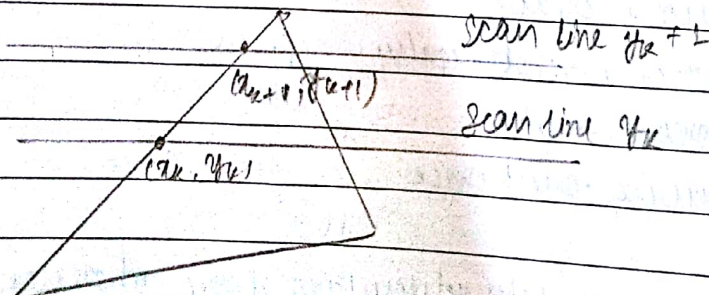 scan line yk + 1
(xk+1, yk+1)
scan line yk
(xk, yk)